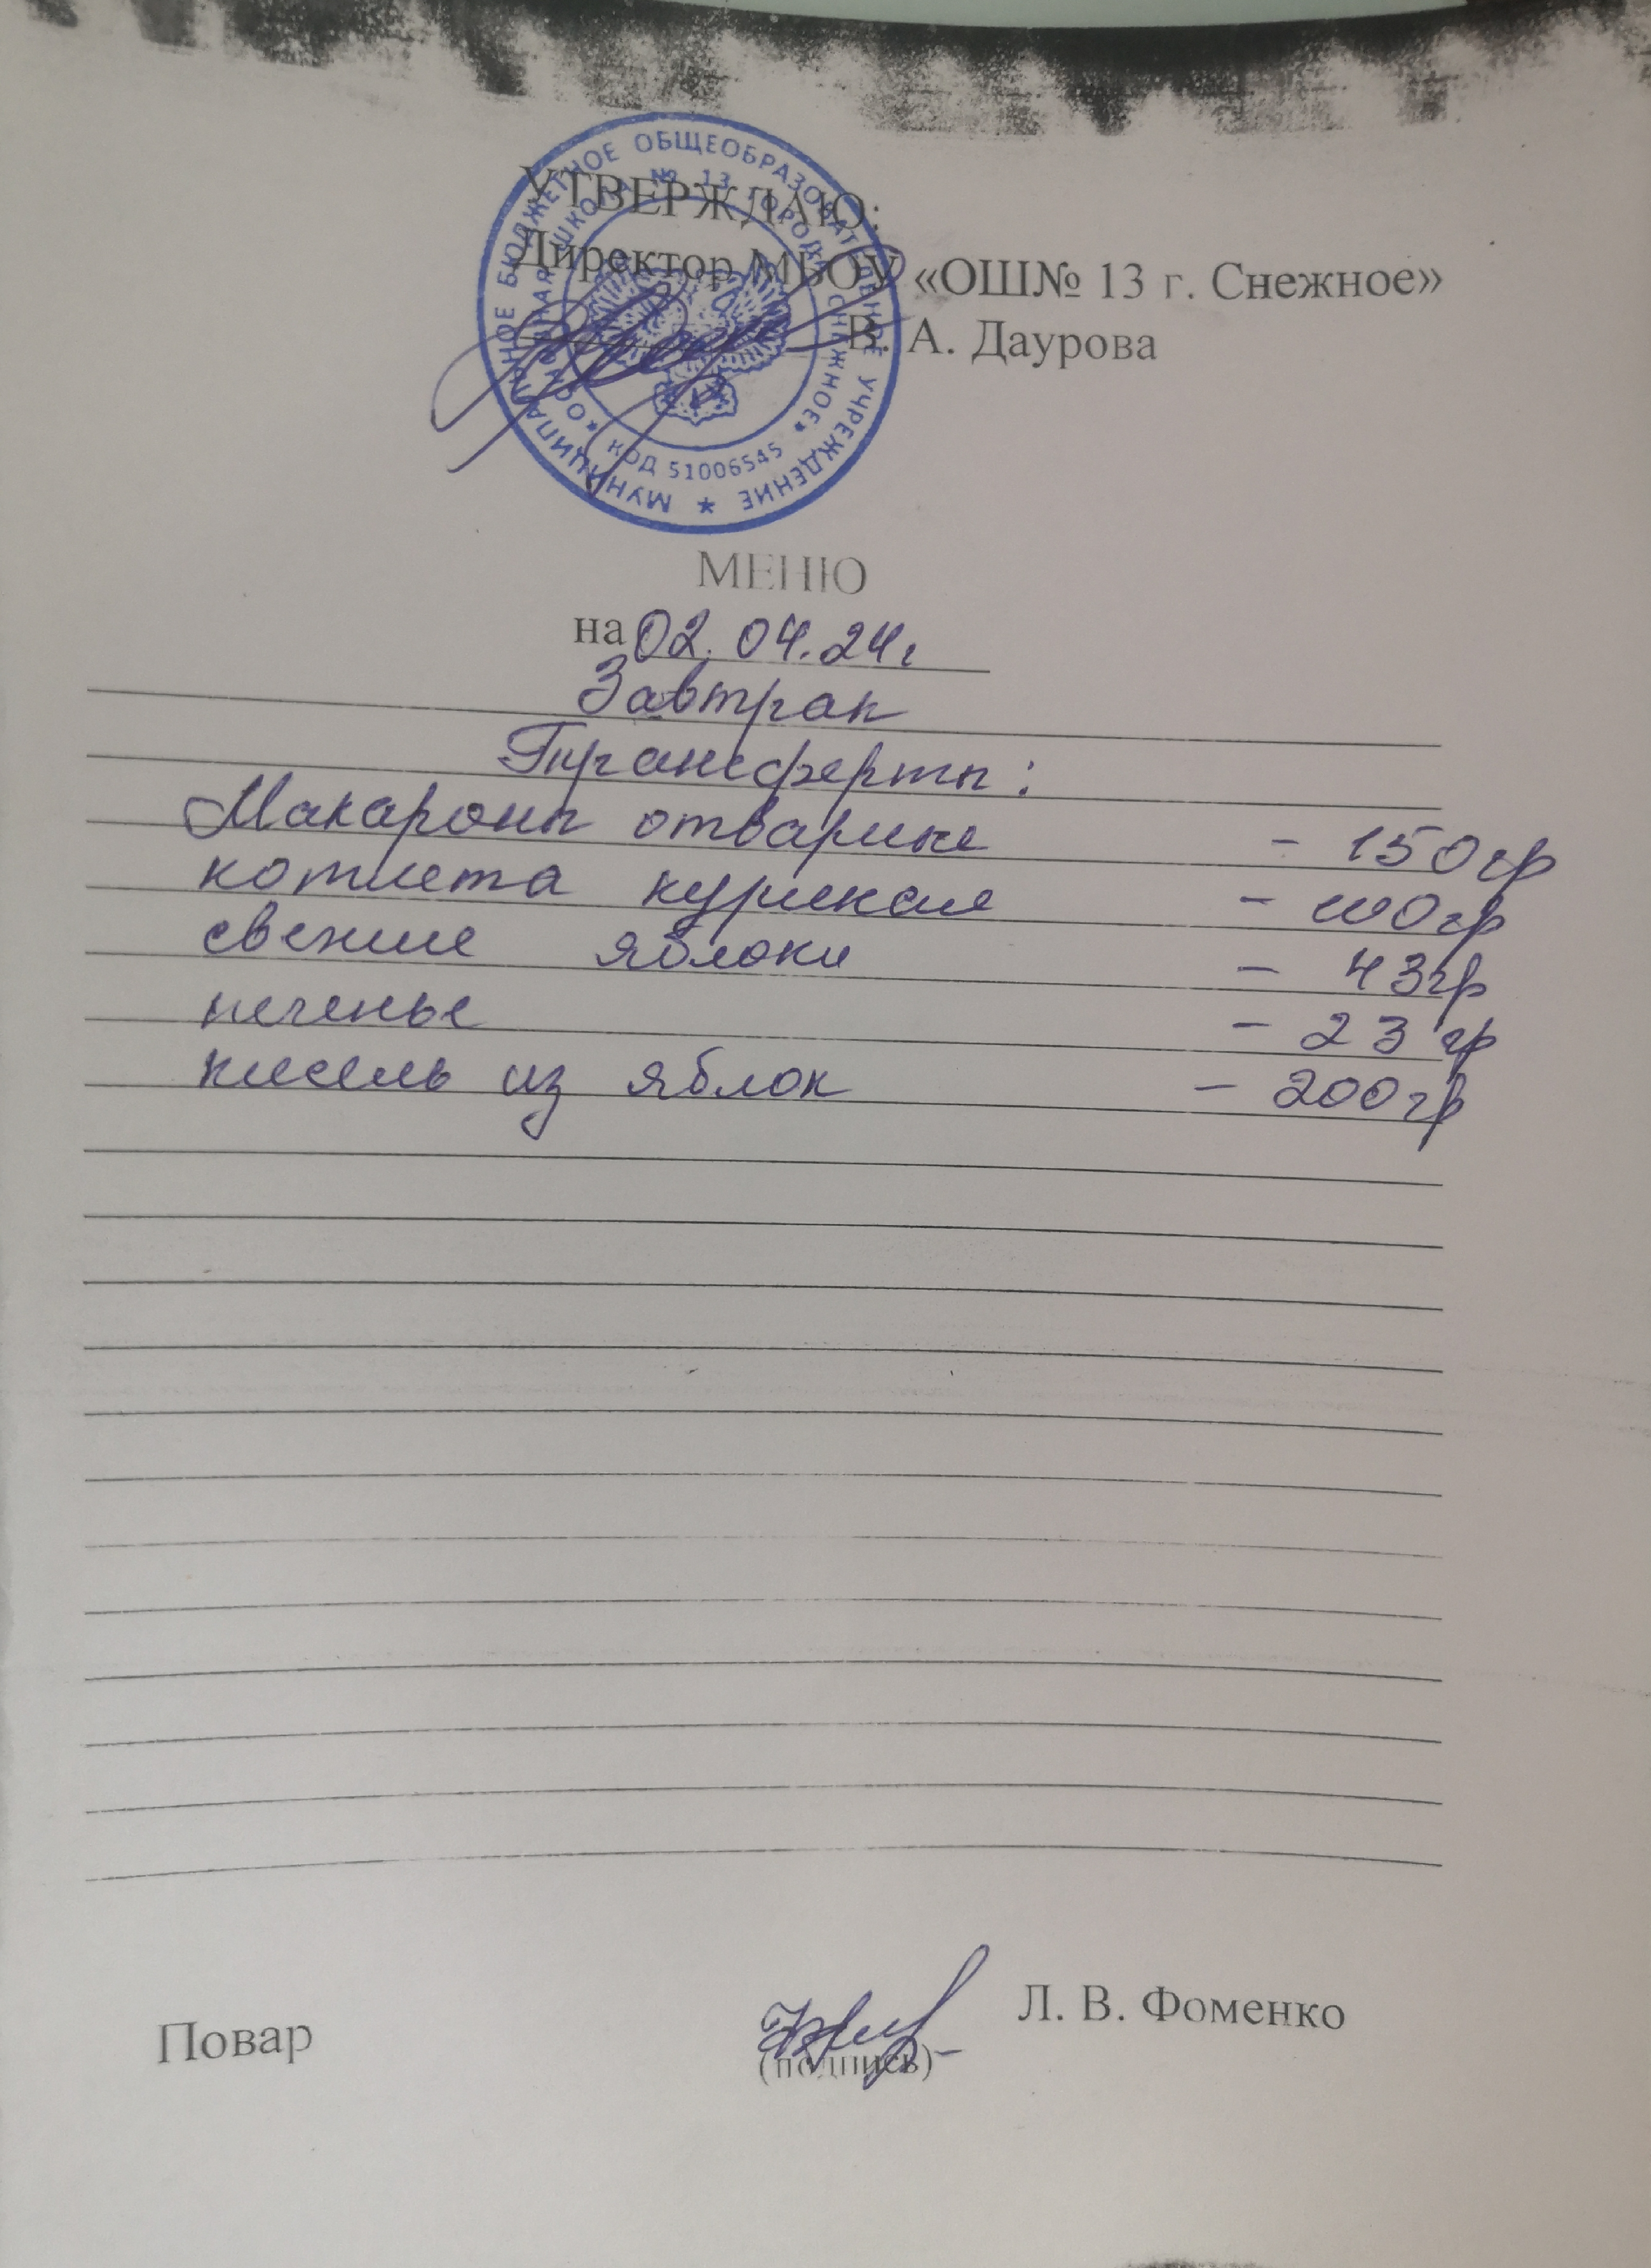 УТВЕРЖДАЮ:
Директор МБОУ «ОШ№ 13 г. Снежное»
В. А. Даурова
МУНИЦИПАЛЬНОЕ БЮДЖЕТНОЕ ОБЩЕОБРАЗОВАТЕЛЬНОЕ УЧРЕЖДЕНИЕ
ШКОЛА № 13 ГОРОДА СНЕЖНОЕ»
КОД 51006545
МЕНЮ
на 02.04.24г
Завтрак
Трансферты:
Макароны отварные - 150гр
котлета куриная - 100гр
свежие яблоки - 43гр
печенье - 23 гр
кисель из яблок - 200гр
Повар
Л. В. Фоменко
(подпись)